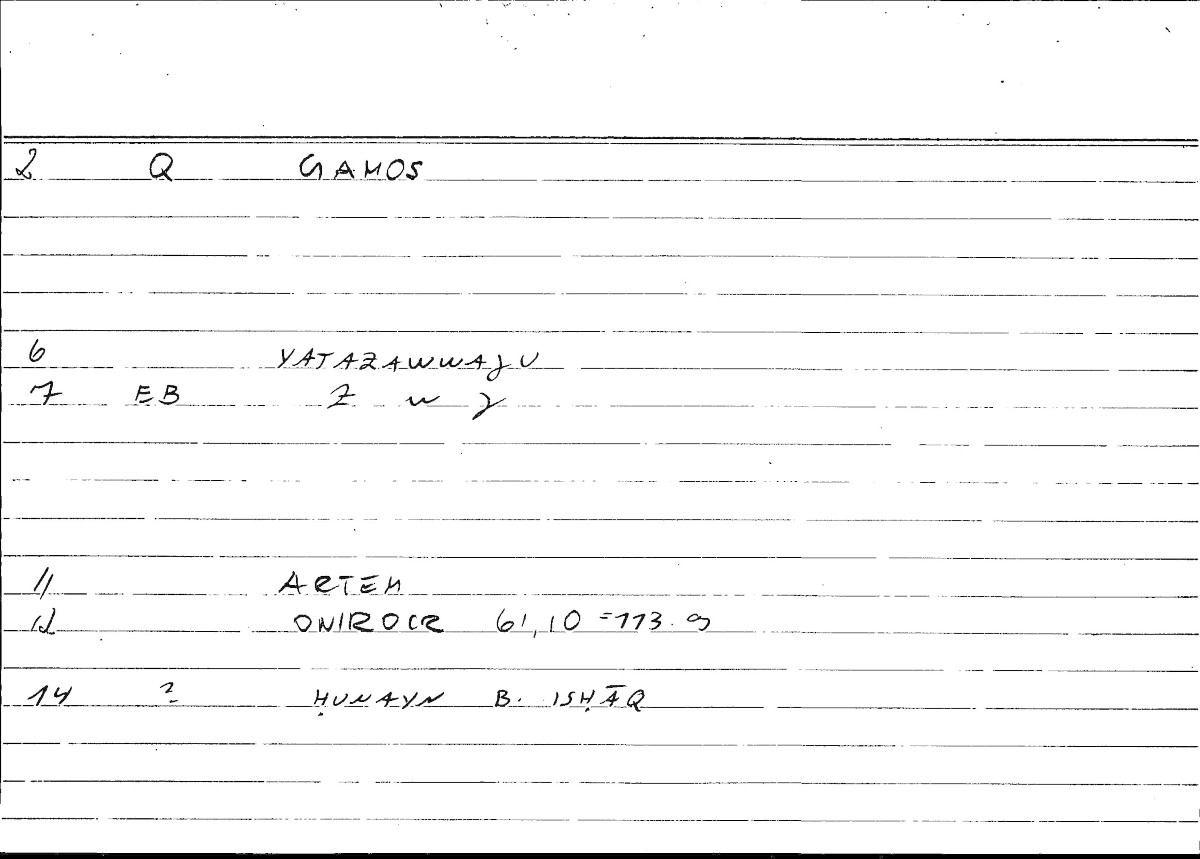 2 Q GAMOS
6 YATAZAWWAJU
7 EB Z W J
11 ARTEM
12 ONIROCR 61,10 = 113.9
14 ? ḤUNAYN B. ISḤĀQ